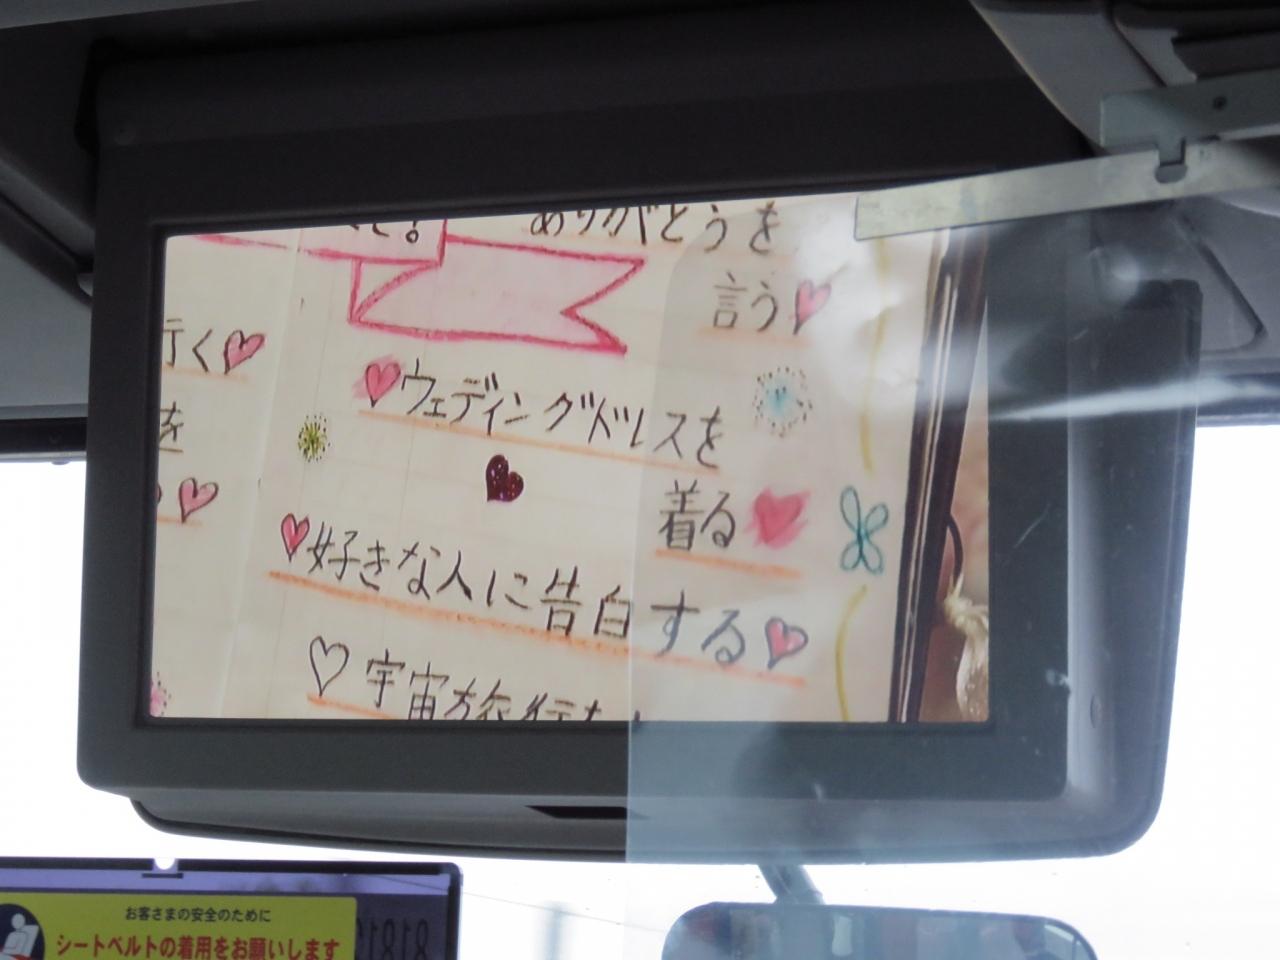 ありがとうを
言う
行く
を
ウェディングドレスを
着る
好きな人に告白する
宇宙旅行
お客さまの安全のために
シートベルトの着用をお願いします